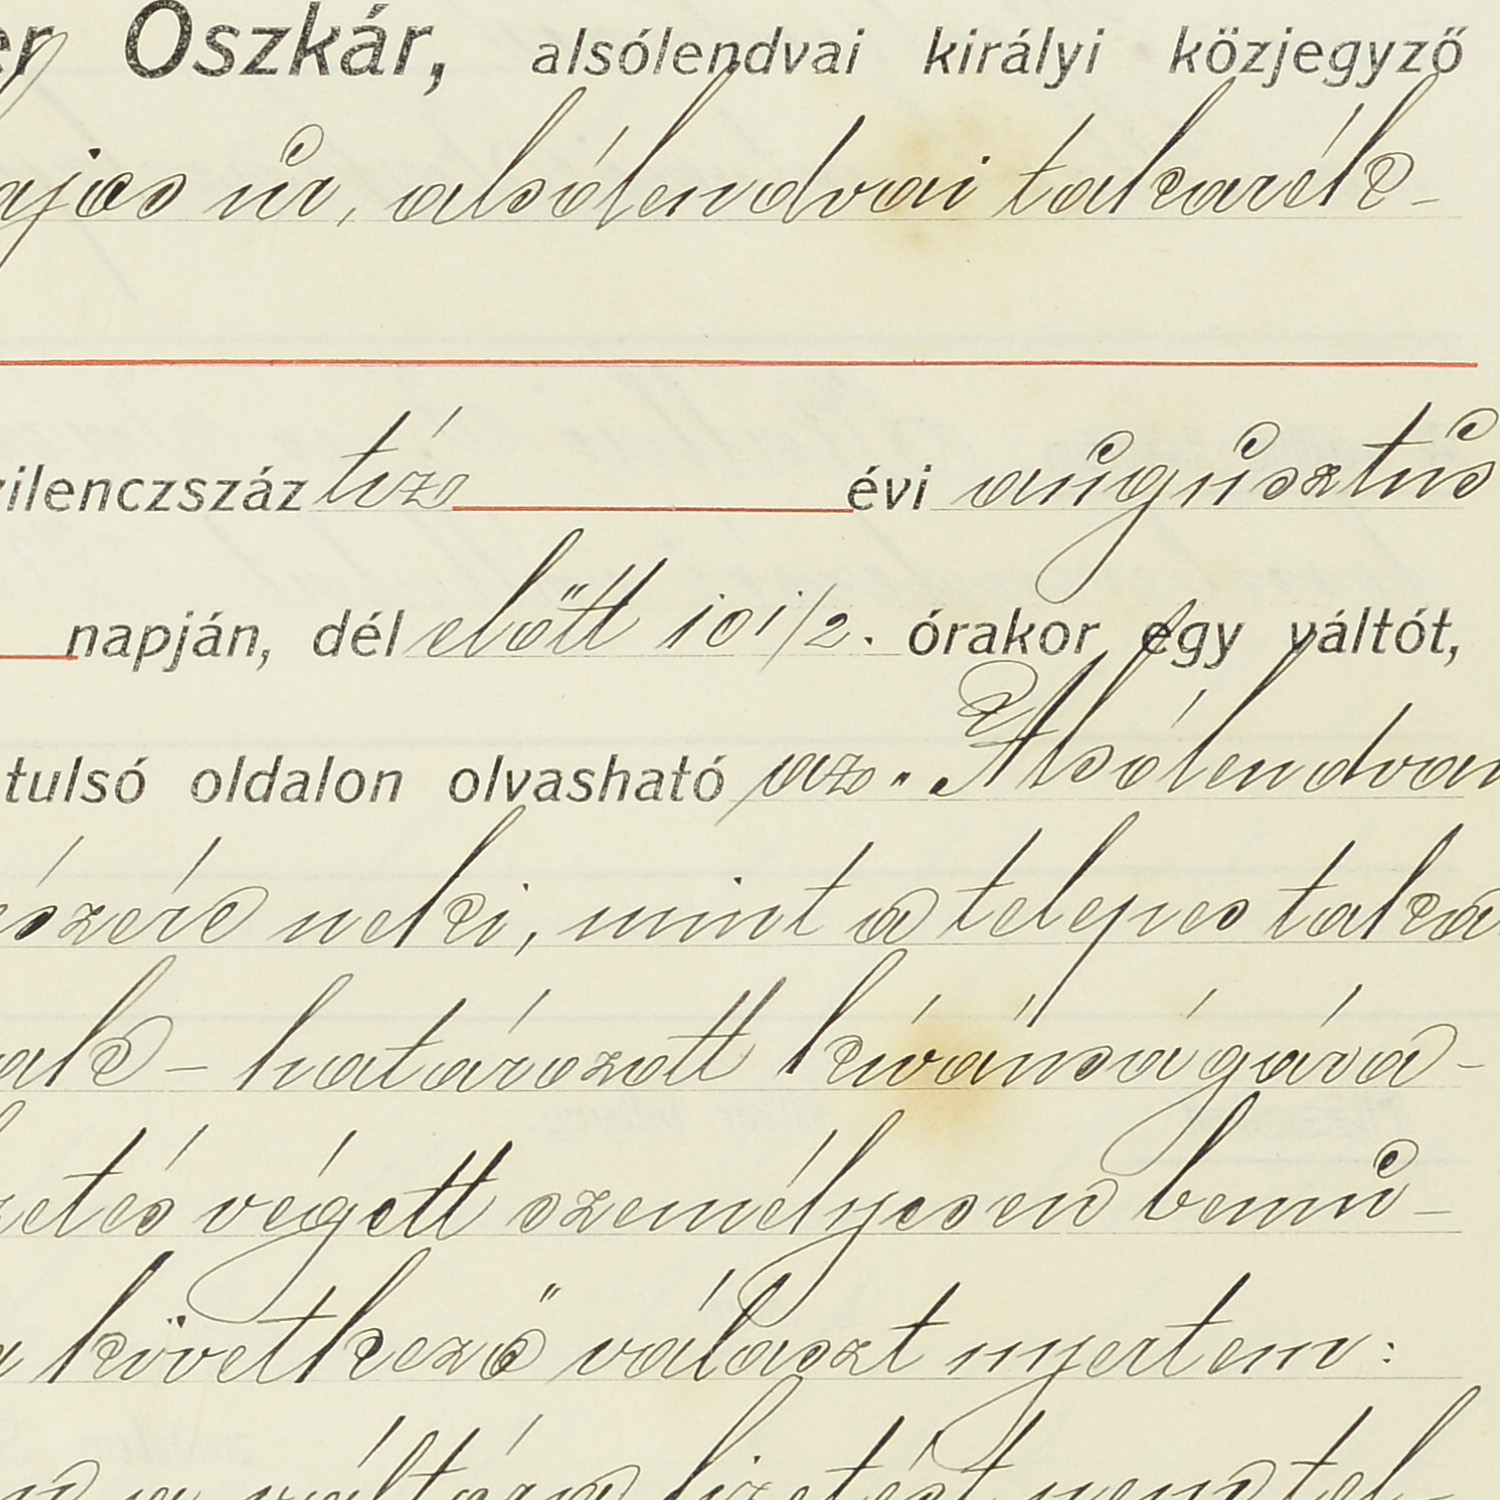 er Oszkár, alsólendvai királyi közjegyző
ajos úr, alsólendvai takarék-
zilenczszáz tíz évi augusztus
napján, dél előtt 10 1/2. órakor egy váltót,
tulsó oldalon olvasható az "Alsólendvai
észére neki, mint a telepes taka
ak - határozott kívánságára -
zetés végett személyesen bemu-
a következő választ nyertem:
a váltóra fizetést nem tel-